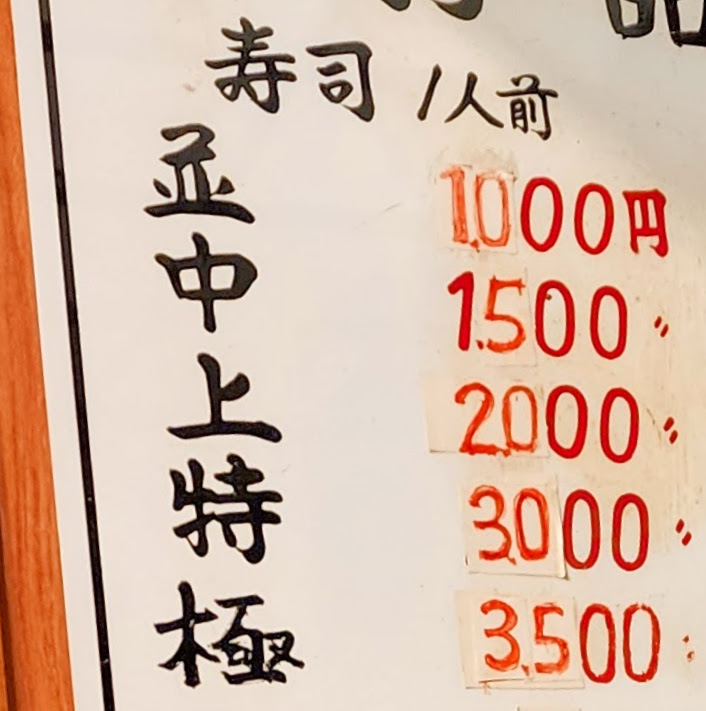 寿司 1人前
並 1.000円
中 1.500〃
上 2.000〃
特 3.000〃
極 3.500〃